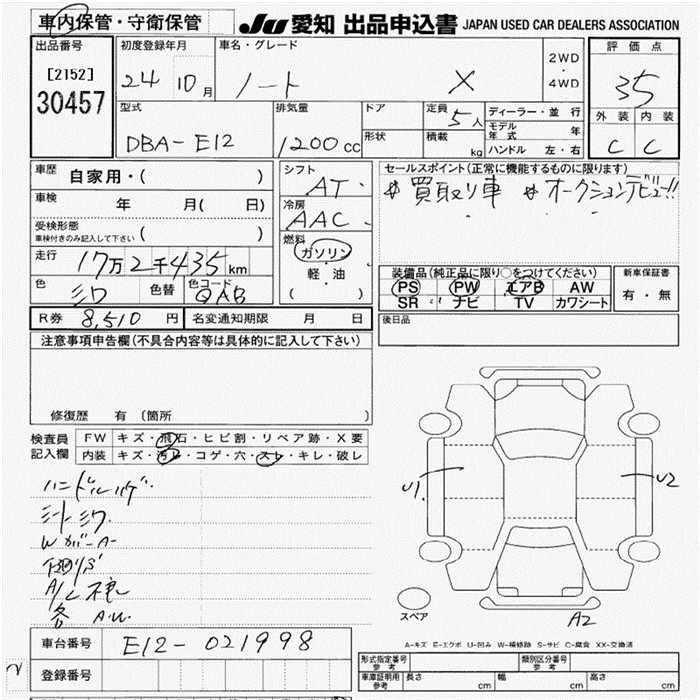 車内保管・守衛保管 JU愛知 出品申込書 JAPAN USED CAR DEALERS ASSOCIATION
出品番号 初度登録年月 車名・グレード 2WD・4WD 評価点
[2152] 24 10月 ノート X 3.5
30457 型式 排気量 ドア 定員 5人 ディーラー・並行 外装 内装
DBA-E12 1200cc 形状 積載 kg モデル年式 年 C C
ハンドル 左・右
車歴 自家用・( ) シフト AT セールスポイント(正常に機能するものに限ります)
車検 年 月( 日) 冷房 AAC #買取り車 #オークションデビュー!!
受検形態 車検付きのみ記入して下さい ( ) 燃料 ガソリン
走行 17万2千435km 軽・油 装備品(純正品に限り○をつけてください) 新車保証書
色 シロ 色替 色コード QAB ( ) PS PW エアB AW 有・無
SR ナビ TV カワシート
R券 8,510円 名変通知期限 月 日 後日品
注意事項申告欄(不具合内容等は具体的に記入して下さい)
修復歴 有 (箇所 )
検査員記入欄 FW キズ・飛石・ヒビ割・リペア跡・X要
内装 キズ・汚レ・コゲ・穴・スレ・キレ・破レ
ハンドルハゲ
シートシワ
Wガ-A-
A/C
各 A.U.
U1. U2
スペア A2
A-キズ E-エクボ U-凹み W-補修跡 S-サビ C-腐食 XX-交換済
車台番号 E12-021998
登録番号
形式指定番号 参考 類別区分番号 参考
車庫証明用 参考 長さ cm 幅 cm 高さ cm